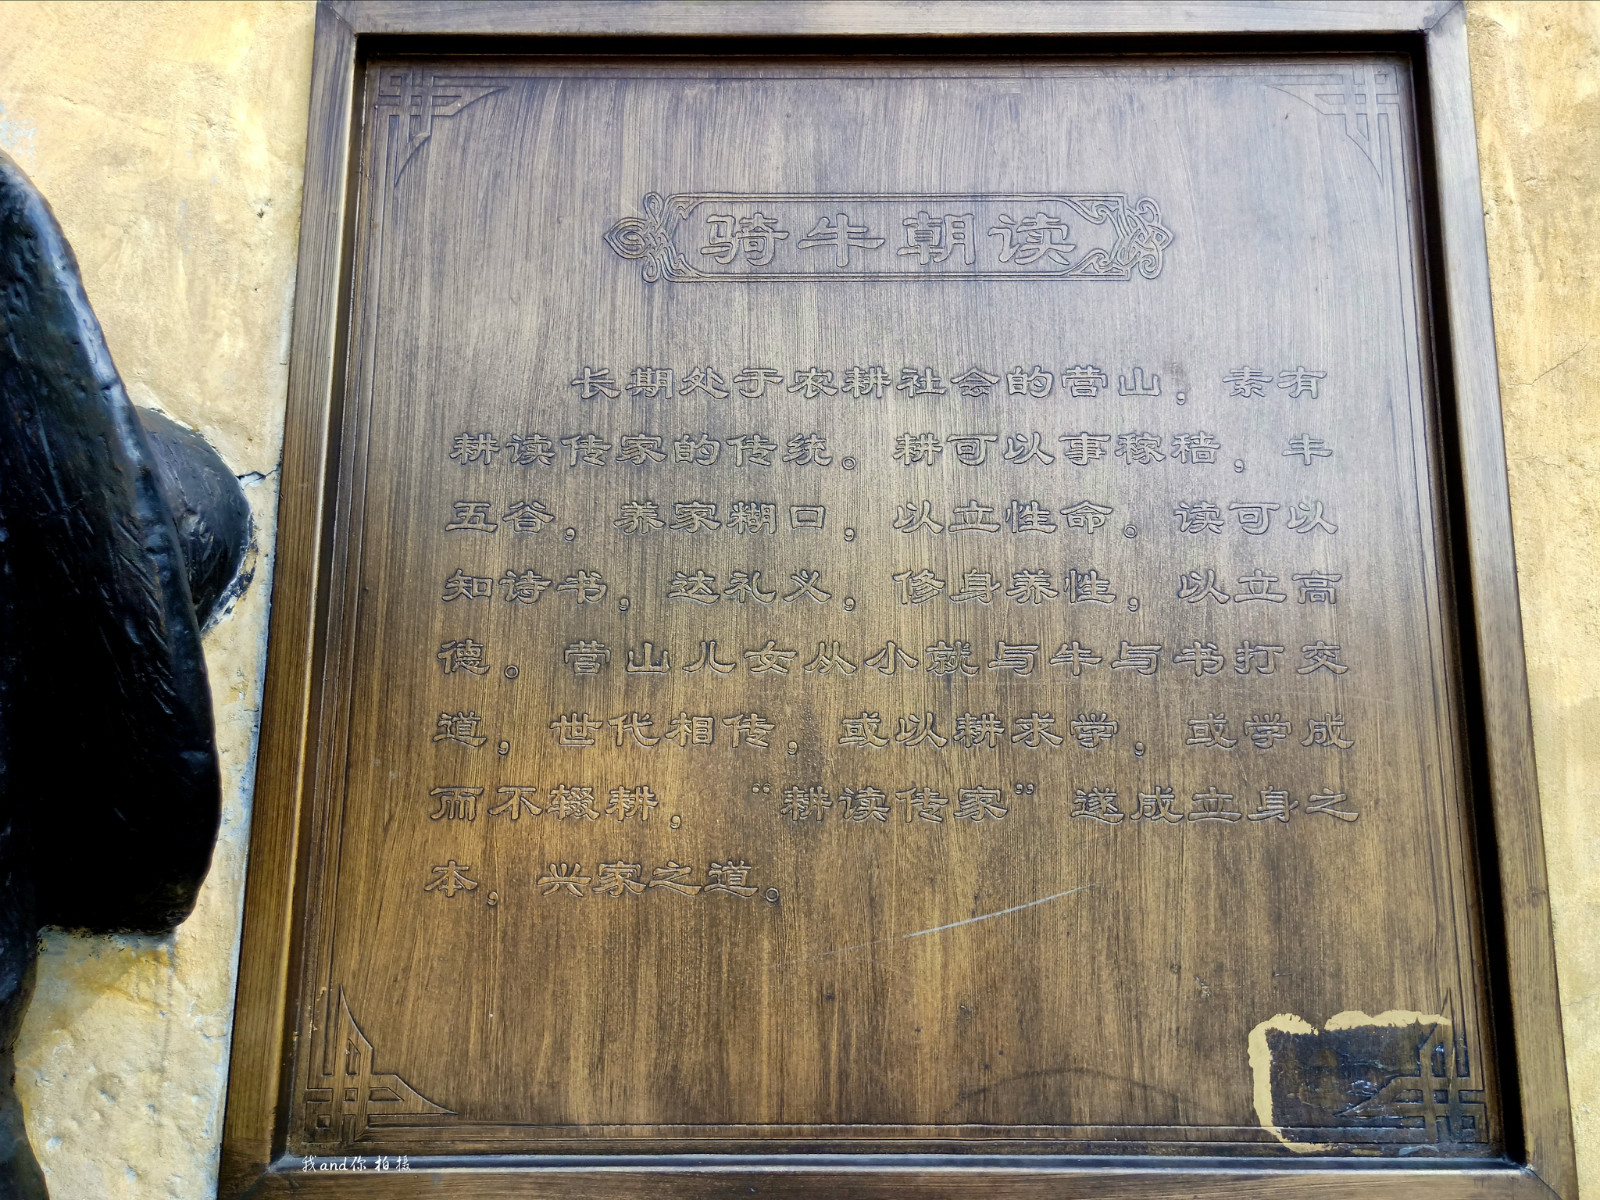 骑牛朝读
长期处于农耕社会的营山，素有
耕读传家的传统。耕可以事稼穑，丰
五谷，养家糊口，以立性命。读可以
知诗书，达礼义，修身养性，以立高
德。营山儿女从小就与牛与书打交
道，世代相传，或以耕求学，或学成
而不辍耕，“耕读传家”遂成立身之
本，兴家之道。
我and你 拍摄